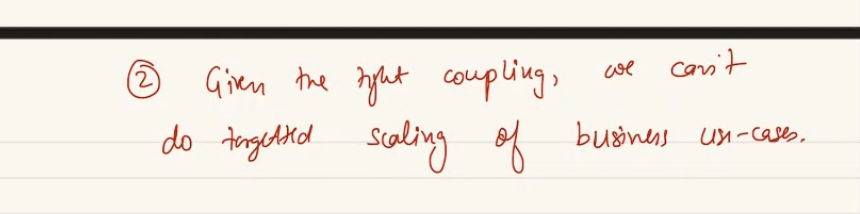 ② Given the tight coupling, we can't
do targetted scaling of business use-cases.